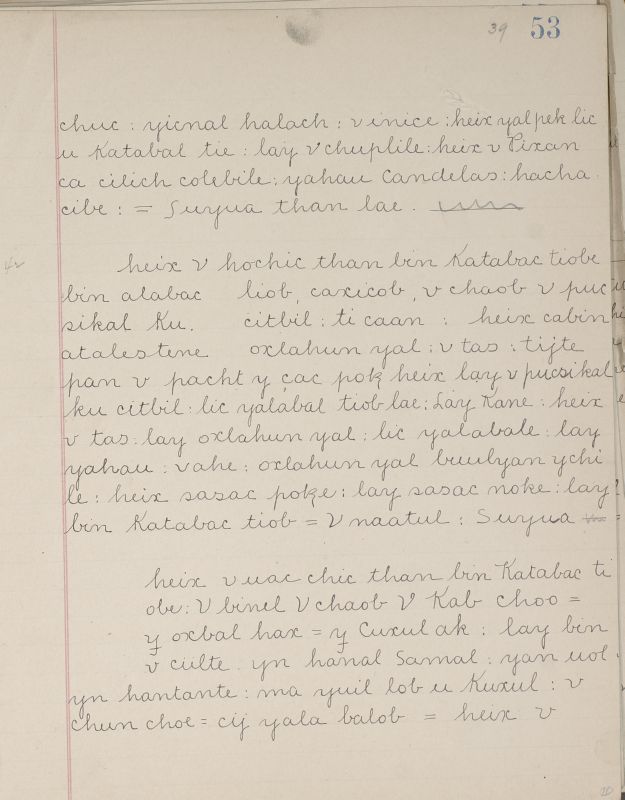 39 53
chuc : yicnal halach : vinice : heix yal pek lic
u Katabal tie : lay v chuplile : heix v Pixan
ca cilich colebile : yahau Candelas : hacha
cibe : = Suyua than lae .
42
heix v hochic than bin Katabac tiobe
bin alabac liob, caxicob, v chaob v puc
sikal Ku. citbil : ti caan : heix cabin
atalestene oxlahun yal : v tas : tijte
pan v pacht y çac pok heix lay v pucsikal
ku citbil : lic yalabal tiob lae : Lay Kane : heix
v tas : lay oxlahun yal : lic yalabale : lay
yahau : vahe : oxlahun yal buulyan ychi
le : heix sasac poke : lay sasac noke : lay
bin Katabac tiob = V naatul : Suyua =
heix v uac chic than bin Katabac ti
obe : V binel V chaob V Kab choo =
y oxbal hax = y Cuxul ak : lay bin
v ciilte yn hanal Samal : yan uol
yn hantante : ma yuil lob u Kuxul : v
chun choe = cij yala balob = heix v